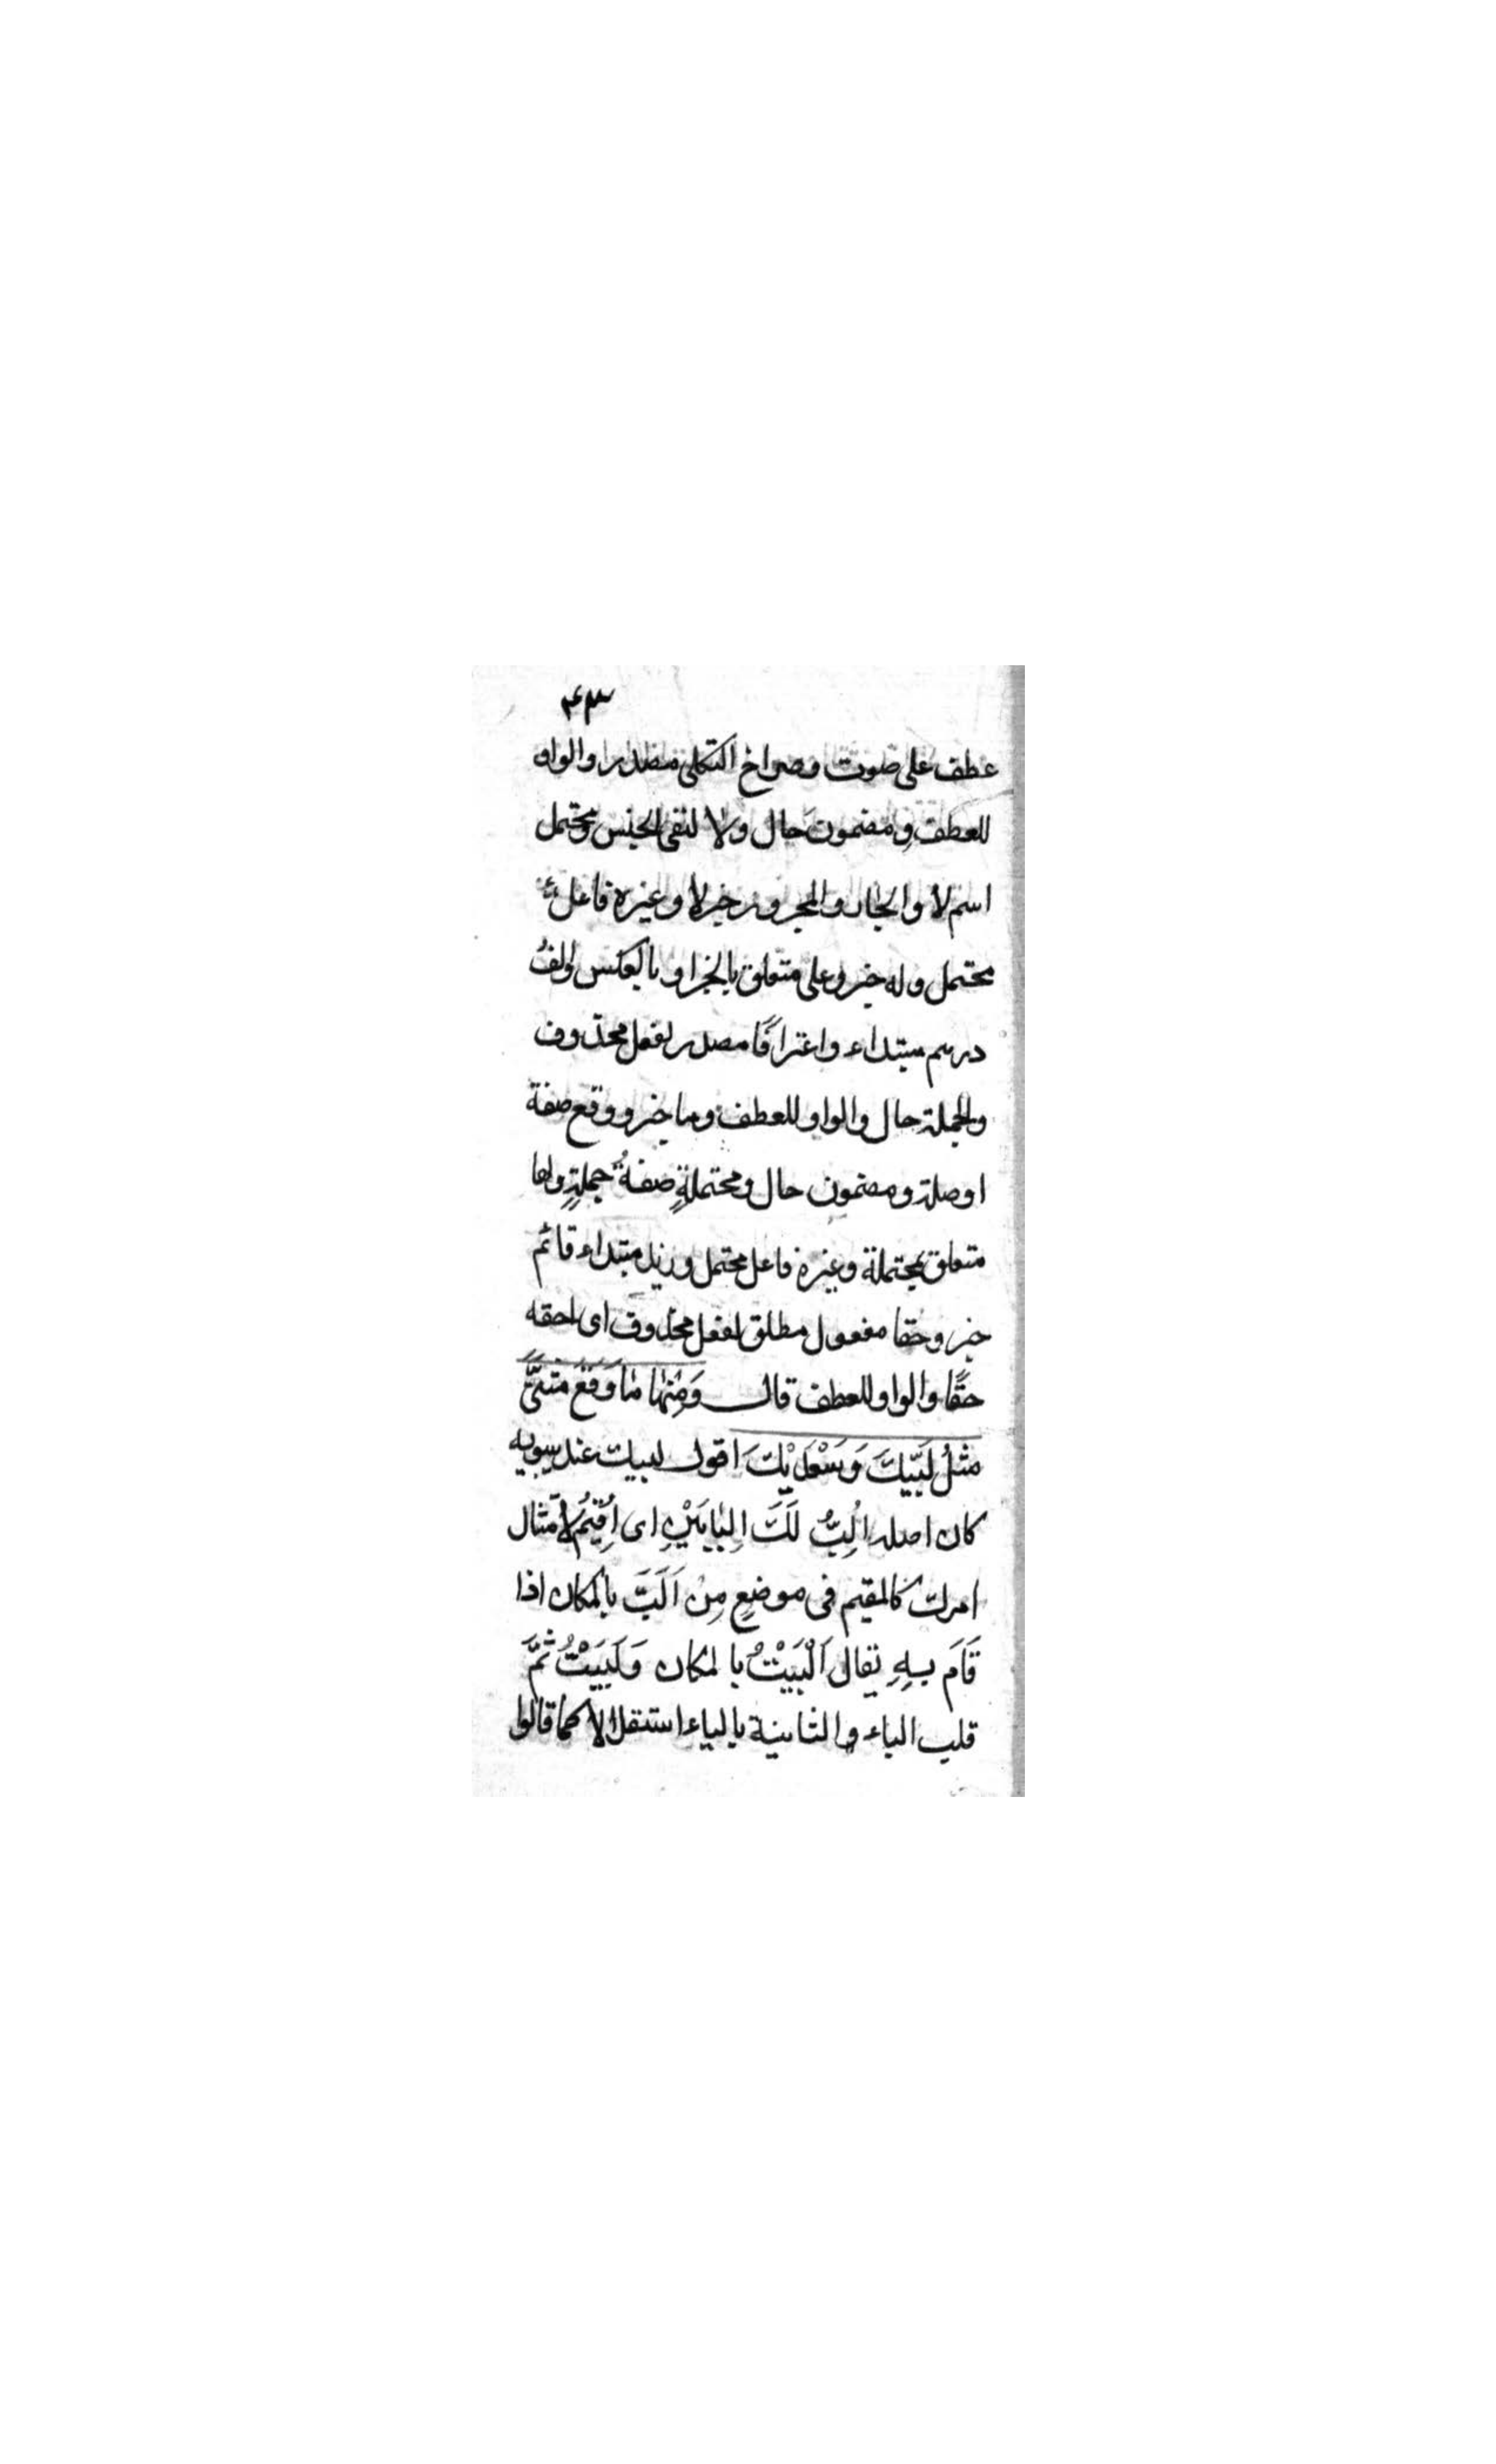 ۴۳
عطف على صوت وصراخ الثكلى مصدر والواو
للعطف ومضمون حال ولا لنفى الجنس ومحتمل
اسم لا والجار والمجرور خبر لا وغيره فاعل
محتمل وله خبر وعلى متعلق بالخبر او بالعكس والف
درهم مبتداء واعترافًا مصدر لفعل محذوف
والجملة حال والواو للعطف وما خبر ووقع صفة
اوصلة ومضمون حال ومحتملةٍ صفةُ جملةٍ ولها
متعلق بمحتملة وغيره فاعل محتمل وزيد مبتداء قائم
خبر وحقا مفعول مطلق لفعل محذوف اى احقه
حقًا والواو للعطف قال وَمِنْهَا مَا وَقَعَ مُثَنًّى
مثلُ لَبَّيْكَ وَسَعْدَيْكَ اقول لبيك عند سيبويه
كان اصله اُلِبُّ لَكَ اِلْبَابَيْنِ اى اُقِيْمُ لاِمْتثال
امرك كالمقيم فى موضعٍ مِنْ اَلَبَّ بالمكان اذا
قَامَ بِهِ يقال اَلْبَيْتُ بالمكان وَلَبَيْتُ ثُمَّ
قلب الباء والثانية بالياء استثقالا كما قالوا